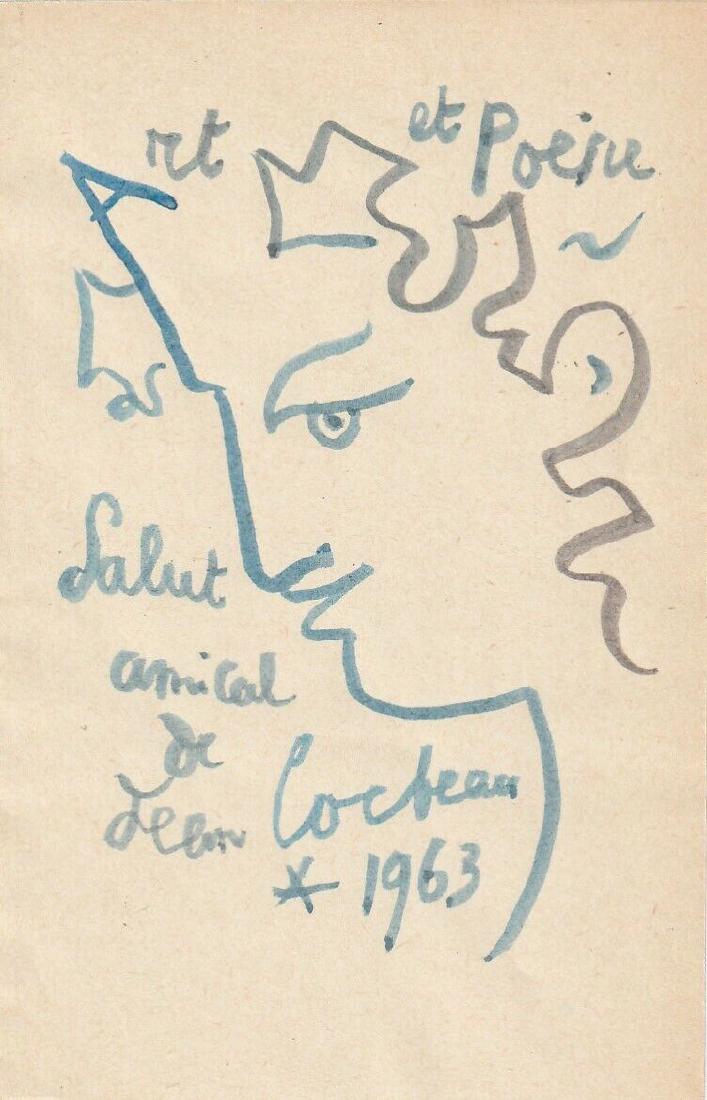 Art et Poésie
Salut
amical
de
Jean Cocteau
* 1963